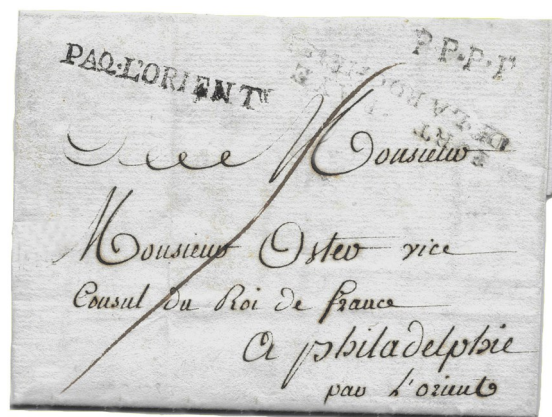 P.P.P.P
PAQ.L'ORIENT
DE LA ROCHELLE
A Monsieur
Monsieur Oster vice
Consul du Roi de france
A philadelphie
par L'orient